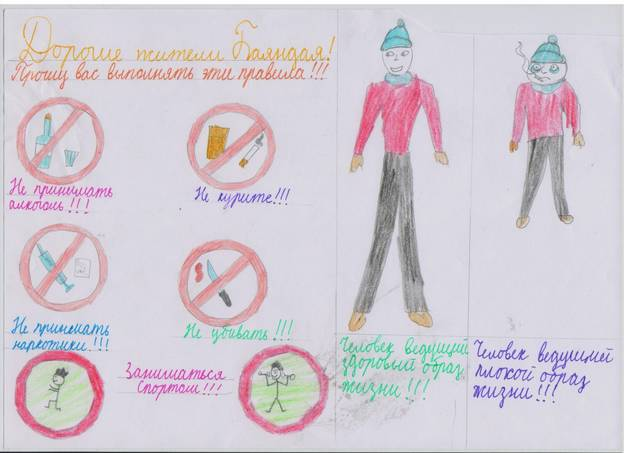 Дорогие жители Баяндая!
Прошу вас выполнять эти правила!!!
Не принимать
алкоголь!!!
Не курите!!!
Не принемать
наркотики!!!
Не убивать!!!
Заниматься
Спортом!!!
Человек ведущий
здоровый образ
жизни!!!
Человек ведущией
плохой образ
жизни!!!